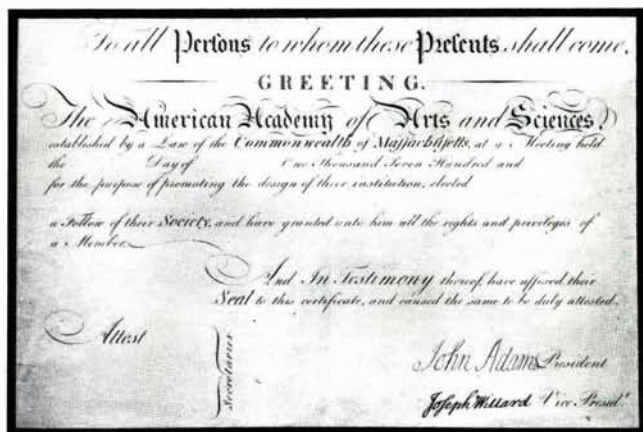 To all Persons to whom these Presents shall come,
GREETING.
The American Academy of Arts and Sciences,
established by a Law of the Commonwealth of Massachusetts, at a Meeting held
the Day of One Thousand Seven Hundred and
for the purpose of promoting the design of their institution, elected
a Fellow of their Society, and have granted unto him all the rights and privileges of
a Member.
And In Testimony thereof, have affixed their
Seal to this certificate, and caused the same to be duly attested.
Attest
Secretaries
John Adams President
Joseph Willard Vice Presidt.